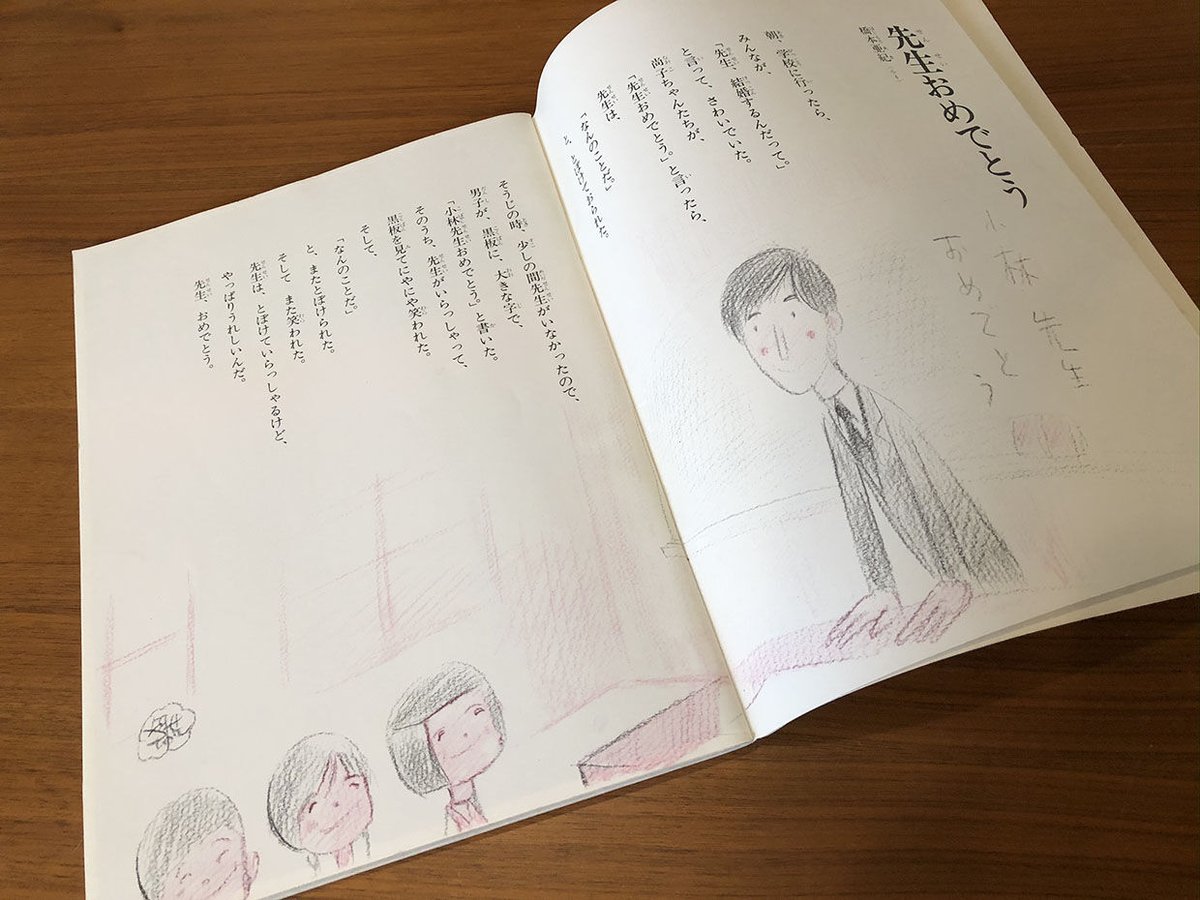 先生おめでとう
橋本亜紀
朝、学校に行ったら、
みんなが、
「先生、結婚するんだって。」
と言って、さわいでいた。
尚子ちゃんたちが、
「先生おめでとう。」と言ったら、
先生は、
「なんのことだ。」
と、とぼけておられた。
小林先生
おめでとう
そうじの時、少しの間先生がいなかったので、
男子が、黒板に、大きな字で、
「小林先生おめでとう。」と書いた。
そのうち、先生がいらっしゃって、
黒板を見てにやにや笑われた。
そして、
「なんのことだ。」
と、またとぼけられた。
そして また笑われた。
先生は、とぼけていらっしゃるけど、
やっぱりうれしいんだ。
先生、おめでとう。